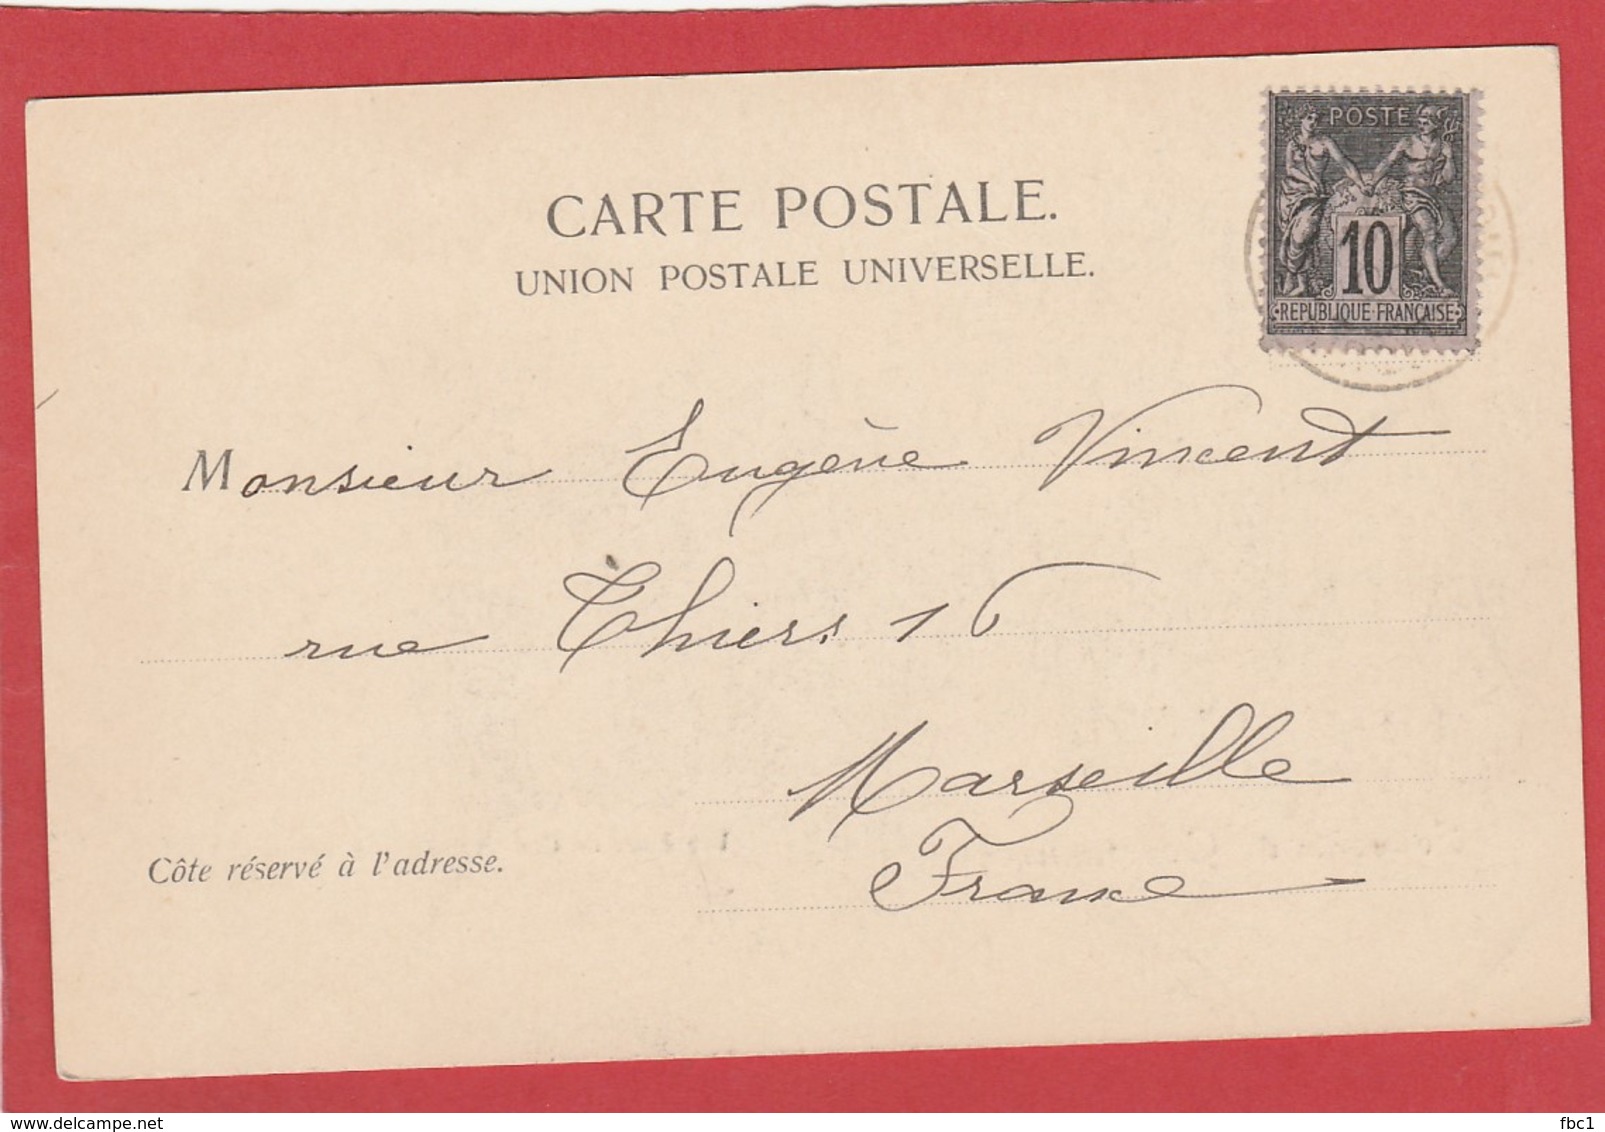 POSTE
10
REPUBLIQUE FRANÇAISE
CARTE POSTALE.
UNION POSTALE UNIVERSELLE.
Monsieur Eugène Vincent
rue Thiers 16
Marseille
France
Côte réservé à l'adresse.
© www.delcampe.net
fbc1